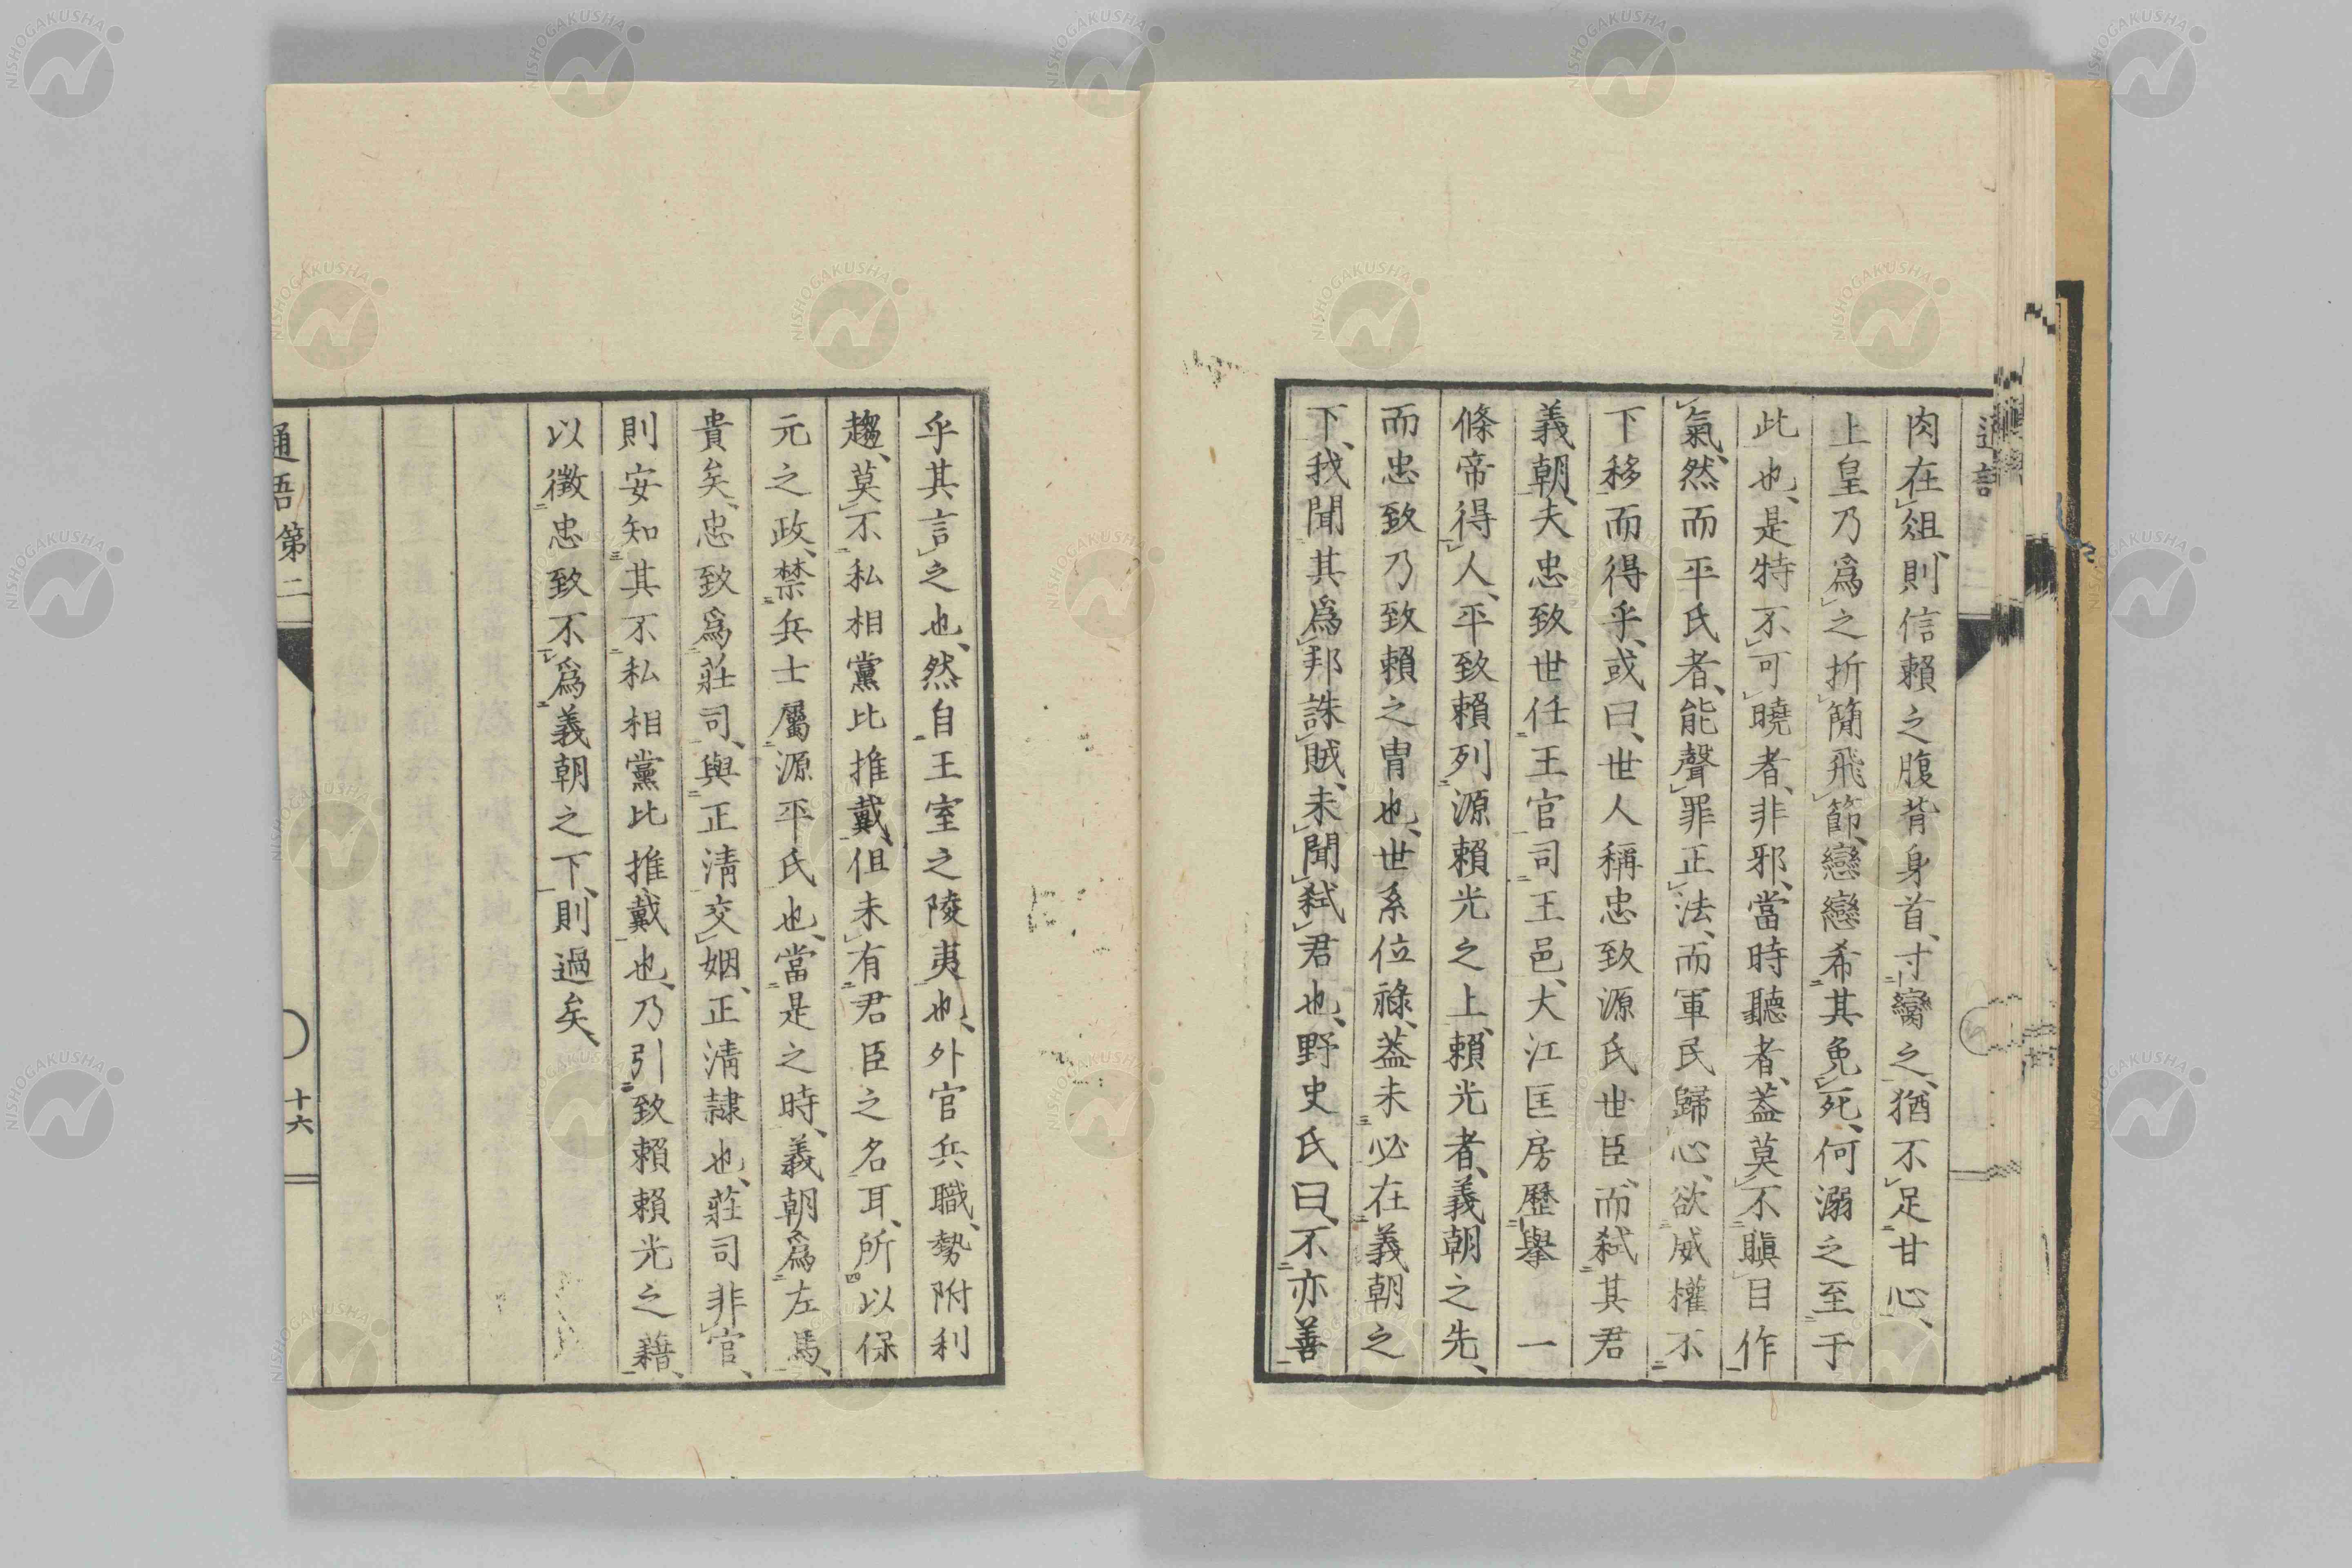 肉在俎、則信賴之腹背身首、寸臠之、猶不足甘心、
上皇乃爲之折簡飛節、戀戀希其免死、何溺之至于
此也、是特不可曉者、非邪、當時聽者、蓋莫不瞋目作
氣、然而平氏者、能聲罪正法、而軍民歸心、欲威權不
下移而得乎、或曰、世人稱忠致源氏世臣、而弑其君
義朝、夫忠致世任王官司王邑、大江匡房歷擧 一
條帝得人、平致賴列源賴光之上、賴光者、義朝之先、
而忠致乃致賴之冑也、世系位祿、蓋未必在義朝之
下、我聞其爲邦誅賊、未聞弑君也、野史氏曰、不亦善
乎其言之也、然自王室之陵夷也、外官兵職、勢附利
趨、莫不私相黨比推戴、但未有君臣之名耳、所以保
元之政、禁兵士屬源平氏也、當是之時、義朝爲左馬、
貴矣、忠致爲莊司、與正淸交姻、正淸隷也、莊司非官、
則安知其不私相黨比推戴也、乃引致賴賴光之藉、
以徵忠致不爲義朝之下、則過矣、
通語第二
十六
NISHOGAKUSHA